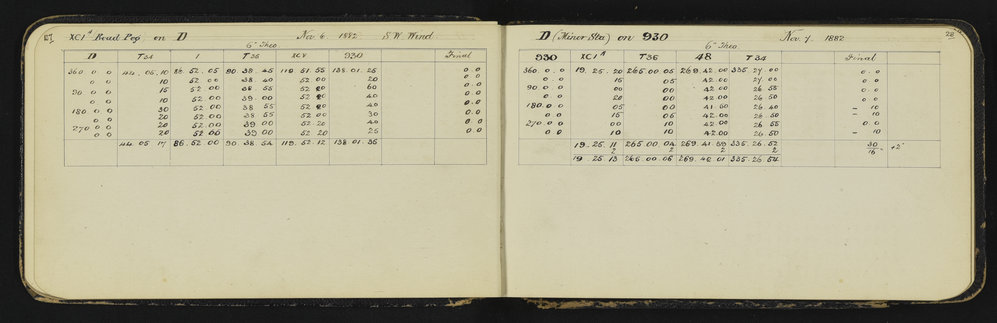 XCIA Road Peg on D Nov 6. 1882 S W Wind
6" Theo
D T34 1 T36 XCV 930 Final
360 0 0 44.05.10 86.52.05 90 38.45 119 51.55 138.01.25 0.0
0 0 10 52 00 38.40 52 00 20 0.0
90 0 0 15 52 00 38.55 52 20 60 0.0
0 0 10 52.00 39.00 52 20 40 0.0
180 0 0 30 52 00 38 55 52 20 40 0.0
0 0 20 52.00 38 55 52.00 30 0.0
270 0 0 20 52.00 39 00 52.20 40 0.0
0 0 20 52 00 39 00 52 20 25 0.0
44.05 17 86.52 00 90 38 54 119.52.12 138 01.35
28
D (Minor Sta) on 930 Nov 7. 1882
6" Theo.
930 XCIA T36 48 T34 Final
360.0.0 19.25.20 265.00 05 269.42 00 335.27.00 0.0
0 0 15 05 42.00 27.00 0.0
90.0 0 00 00 42.00 26 55 0.0
0 0 20 00 42.00 26 50 0 0
180.0 0 05 00 41.50 26 40 - 10
0 0 15 05 42 00 26.50 - 10
270 0 0 00 10 42 00 26 55 0 0
0 0 10 10 42.00 26.50 - 10
19.25 11 265.00.04 269.41 59 335.26.52 30
2 2 2 2 16 +2"
19.25 13 265.00.06 269.42 01 335.26.54